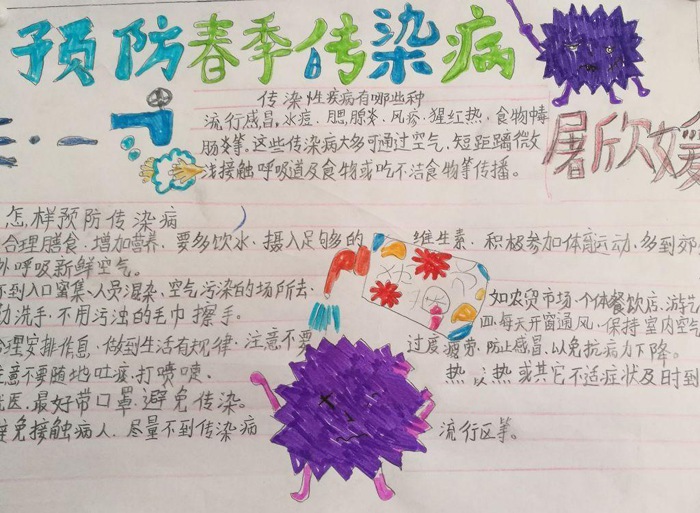 预防春季传染病
传染性疾病有哪些种
流行感冒，水痘、腮腺炎、风疹、猩红热、食物性
肠炎等。这些传染病大多可通过空气、短距离微
浅接触呼吸道及食物或吃不洁食物等传播。
屠欣媛
怎样预防传染病
合理膳食，增加营养，要多饮水，摄入足够的 维生素，积极参加体能运动，多到郊
外呼吸新鲜空气。
到人口密集、人员混杂、空气污染的场所去， 如农贸市场、个体餐饮店、游
勤洗手，不用污浊的毛巾擦手。 每天开窗通风，保持室内空气
合理安排作息，做到生活有规律，注意不要 过度疲劳，防止感冒，以免抗病力下降。
注意不要随地吐痰、打喷嚏。 热 热或其它不适症状及时到
就医，最好带口罩，避免传染。
避免接触病人，尽量不到传染病 流行区等。